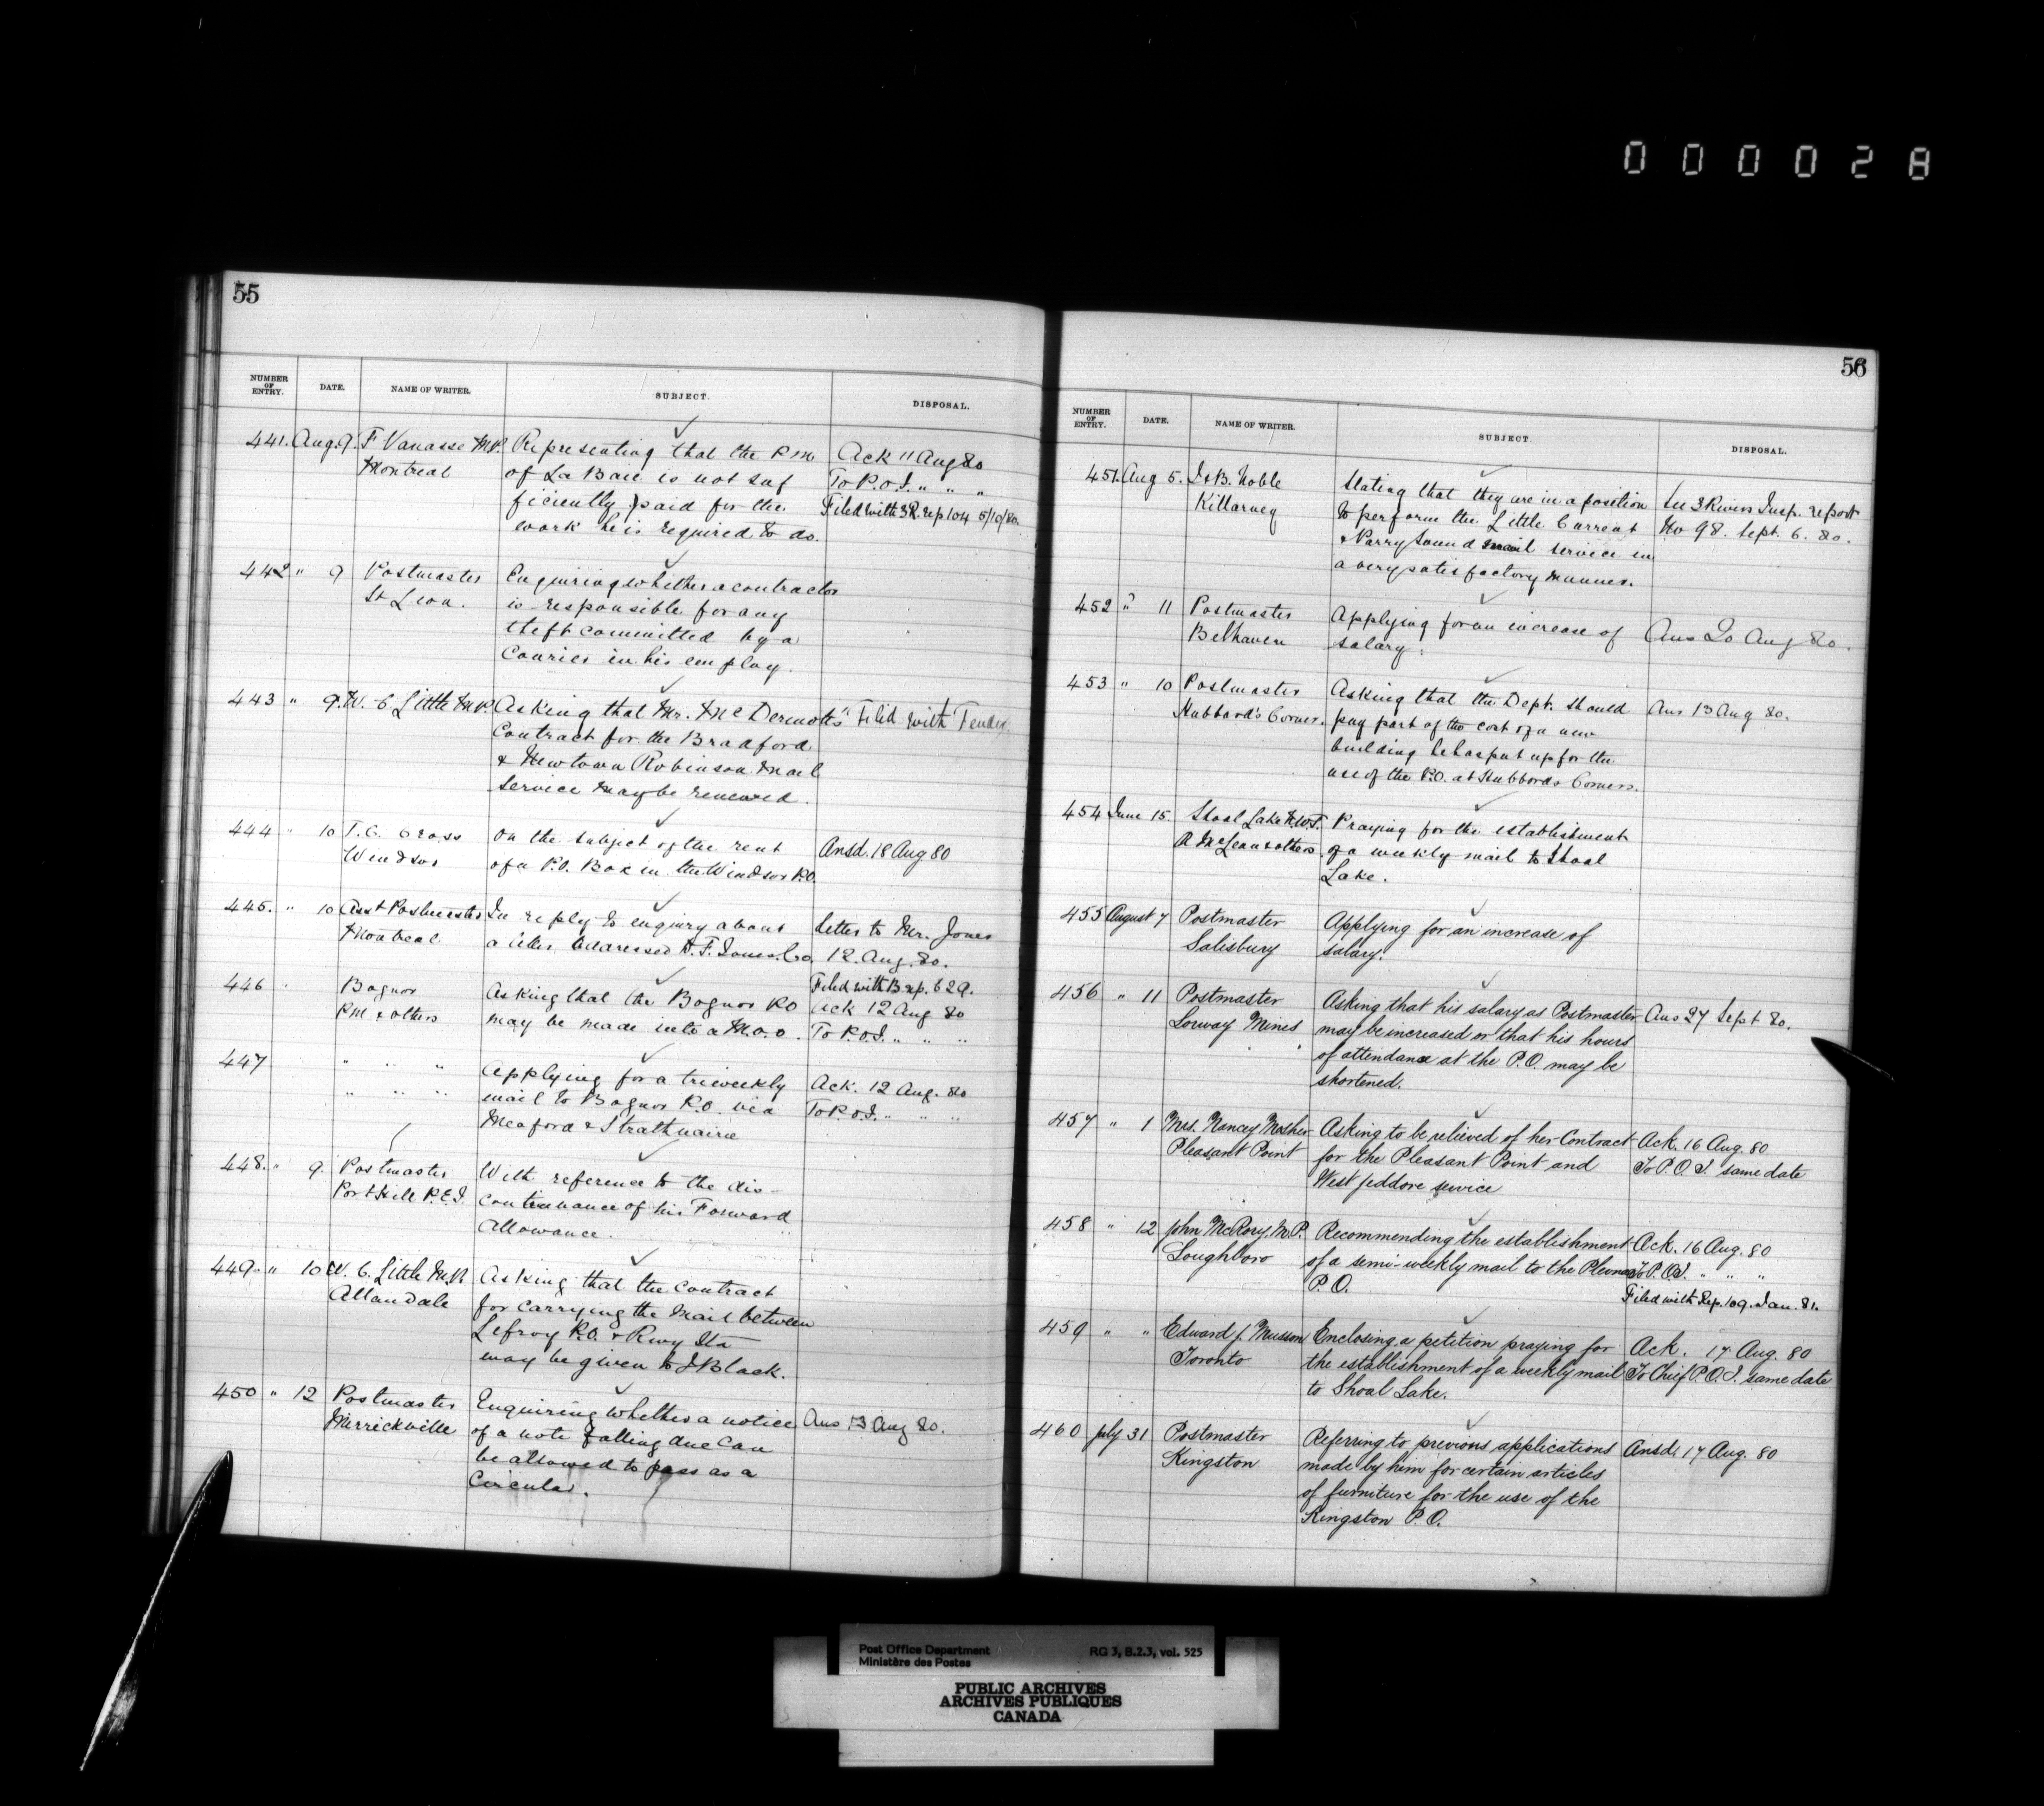 000028
55
NUMBER OF ENTRY. DATE. NAME OF WRITER. SUBJECT. DISPOSAL.
441. Aug. 9. F Vanasse M.P. Representing that the P M Ack 11 Aug 80
Montreal of La Baie is not suf To P.O.I. " " "
ficiently paid for the Filed with 3R. rep 104 5/10/80.
work he is required to do.
442 " 9 Postmaster Enquiring whether a contractor
St Leon. is responsible for any
theft committed by a
Courier in his employ.
443 " 9. W. C. Little M.P. Asking that Mr. McDermott's Filed with Tender
Contract for the Bradford
& Newtown Robinson Mail
Service may be renewed.
444 " 10 T. C. Cross On the subject of the rent Ansd. 18 Aug 80
Windsor of a P.O. Box in the Windsor P.O.
445. " 10 Asst Postmaster In reply to enquiry about Letter to Mr. Jones
Montreal a letter addressed F. Jones & Co. 12. Aug. 80.
446 " Bognor Asking that the Bognor P.O Filed with B. rep. 629.
P M & others may be made into a M.O.O. Ack 12 Aug 80
To P.O.I. " " "
447 " " " Applying for a triweekly Ack. 12 Aug. 80
" " " mail to Bognor P.O. via To P.O.I. " " "
Meaford & Strathnairn
448. " 9. Postmaster With reference to the dis-
Port Hill P.E.I. continuance of his Forward
Allowance.
449. " 10 W. C. Little M.P. Asking that the contract
Allandale for carrying the Mail between
Lefroy P.O. & Rwy Sta
may be given to J Black.
450 " 12 Postmaster Enquiring whether a notice Ans 13 Aug 80.
Merrickville of a note falling due can
be allowed to pass as a
Circular.
56
NUMBER OF ENTRY. DATE. NAME OF WRITER. SUBJECT. DISPOSAL.
451. Aug 5. J & B. Noble Stating that they are in a position See 3 Rivers Insp. report
Killarney to perform the Little Current No 98. Sept. 6. 80.
& Parry Sound mail service in
a very satisfactory manner.
452 " 11 Postmaster Applying for an increase of Ans 20 Aug 80.
Belhaven salary.
453 " 10 Postmaster Asking that the Dept. should Ans 13 Aug 80.
Hubbard's Corner. pay part of the cost of a new
building he has put up for the
use of the P.O. at Hubbords Corners.
454 June 15. Shoal Lake N.W.T. Praying for the establishment
R McLean & others. of a weekly mail to Shoal
Lake.
455 August 7 Postmaster Applying for an increase of
Salisbury salary.
456 " 11 Postmaster Asking that his salary as Postmaster Ans 27 Sept 80.
Lorway Mines may be increased or that his hours
of attendance at the P.O. may be
shortened.
457 " 1 Mrs. Nancy Mosher Asking to be relieved of her Contract Ack. 16 Aug. 80
Pleasant Point for the Pleasant Point and To P.O.I. same date
West Jeddore service
458 " 12 John McRory, M.P. Recommending the establishment Ack. 16 Aug. 80
Loughboro of a semi-weekly mail to the Plevna To P.O.I. " " "
P.O. Filed with Rep. 109. Jan. 81.
459 " " Edward J. Musson Enclosing a petition praying for Ack. 17 Aug. 80
Toronto the establishment of a weekly mail To Chief P.O.I. same date
to Shoal Lake.
460 July 31 Postmaster Referring to previous applications Ansd. 17 Aug. 80
Kingston made by him for certain articles
of furniture for the use of the
Kingston P.O.
Post Office Department RG 3, B.2.3, vol. 525
Ministère des Postes
PUBLIC ARCHIVES
ARCHIVES PUBLIQUES
CANADA